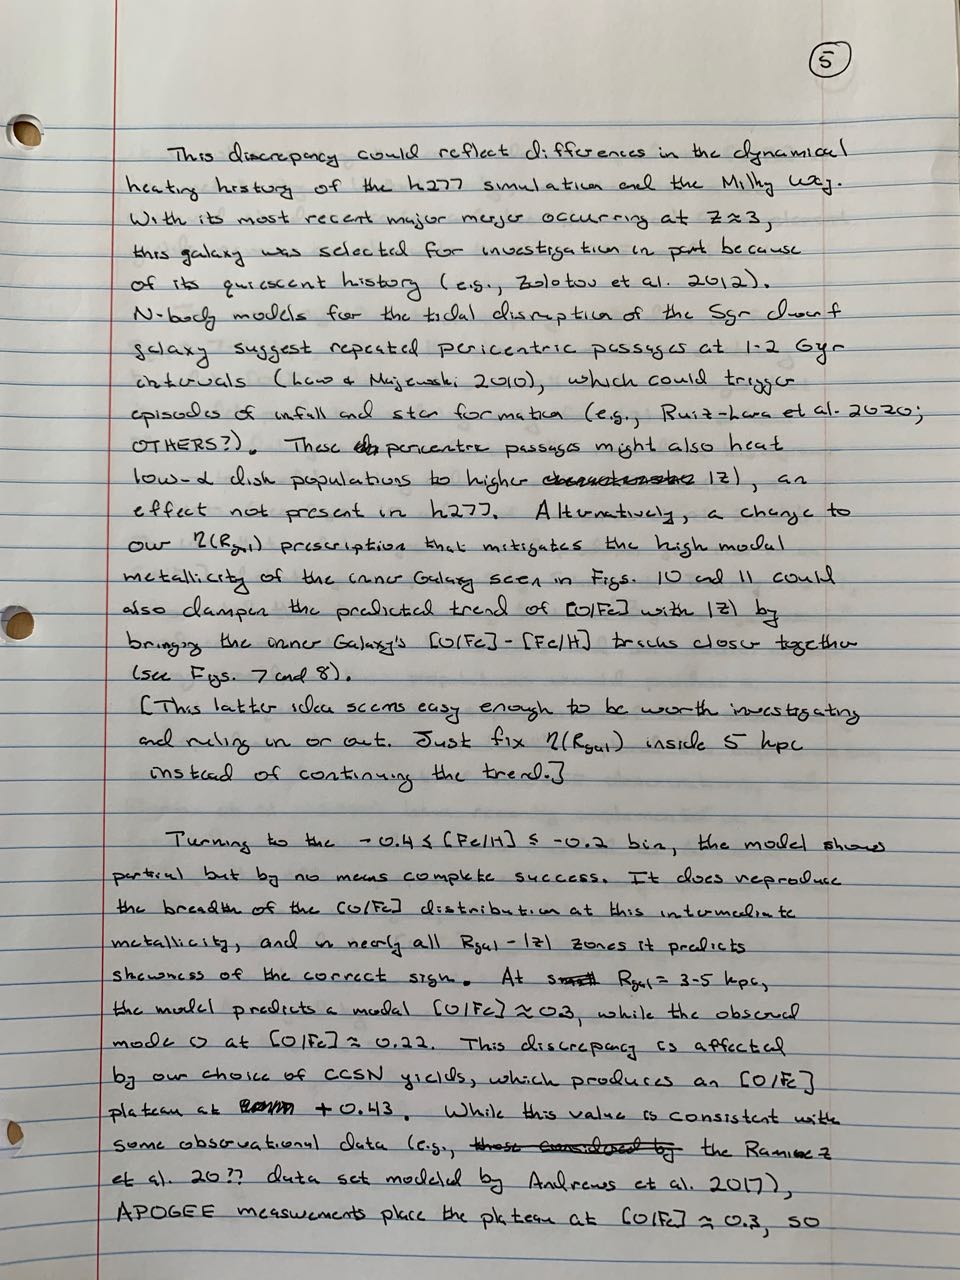 5
This discrepancy could reflect differences in the dynamical
heating history of the h277 simulation and the Milky Way.
With its most recent major merger occurring at z≈3,
this galaxy was selected for investigation in part because
of its quiescent history (e.g., Zolotov et al. 2012).
N-body models for the tidal disruption of the Sgr dwarf
galaxy suggest repeated pericentric passages at 1-2 Gyr
intervals (Law & Majewski 2010), which could trigger
episodes of infall and star formation (e.g., Ruiz-Lara et al. 2020;
OTHERS?). These pericentric passages might also heat
low-α disk populations to higher |z|, an
effect not present in h277. Alternatively, a change to
our η(Rgal) prescription that mitigates the high modal
metallicity of the inner Galaxy seen in Figs. 10 and 11 could
also dampen the predicted trend of [O/Fe] with |z| by
bringing the inner Galaxy's [O/Fe]-[Fe/H] tracks closer together
(see Figs. 7 and 8).
[This latter idea seems easy enough to be worth investigating
and ruling in or out. Just fix η(Rgal) inside 5 kpc
instead of continuing the trend.]
Turning to the -0.4 ≤ [Fe/H] ≤ -0.2 bin, the model shows
partial but by no means complete success. It does reproduce
the breadth of the [O/Fe] distribution at this intermediate
metallicity, and in nearly all Rgal-|z| zones it predicts
skewness of the correct sign. At Rgal = 3-5 kpc,
the model predicts a modal [O/Fe] ≈ 0.3, while the observed
mode is at [O/Fe] ≈ 0.22. This discrepancy is affected
by our choice of CCSN yields, which produces an [O/Fe]
plateau at +0.43. While this value is consistent with
some observational data (e.g., the Ramirez
et al. 20?? data set modeled by Andrews et al. 2017),
APOGEE measurements place the plateau at [O/Fe] ≈ 0.3, so